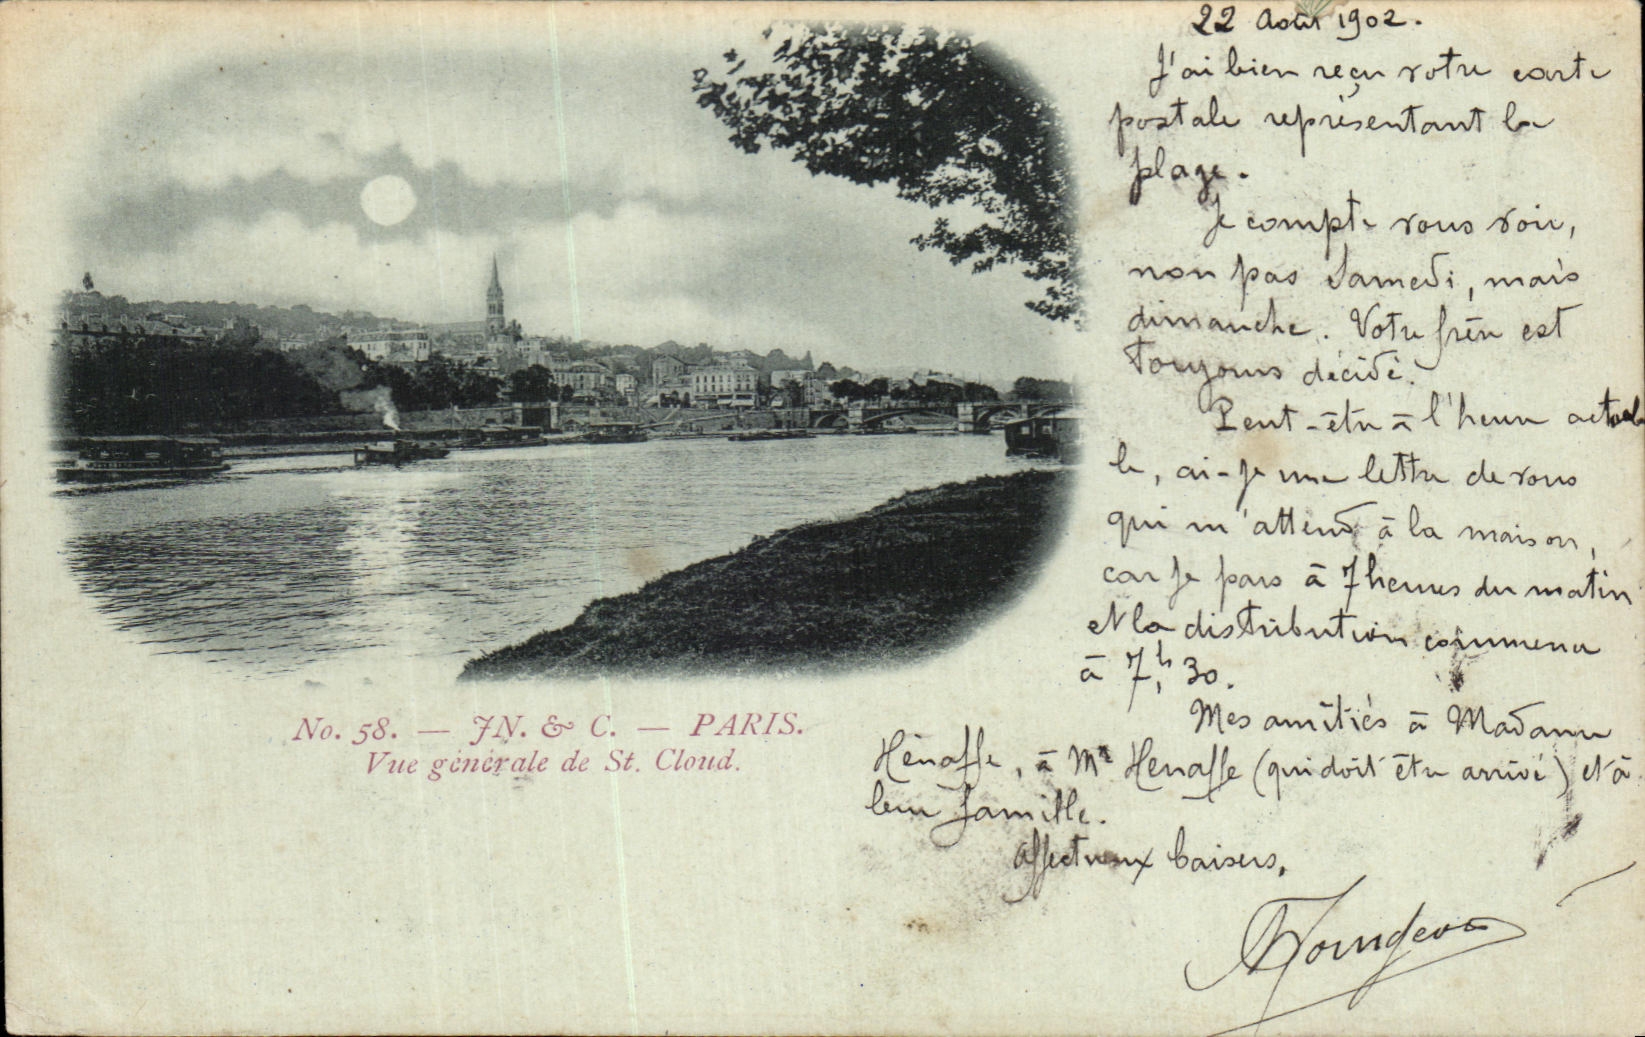 22 Août 1902.
J'ai bien reçu votre carte
postale représentant la
plage.
Je compte vous voir,
non pas Samedi, mais
dimanche. Votre frère est
toujours décidé.
Peut-être à l'heure actuel
le, ai-je une lettre de vous
qui m'attend à la maison,
car je pars à 7 heures du matin
et la distribution commence
à 7h, 30.
Mes amitiés à Madame
Hénaffe, à Mr Henaffe (qui doit être arrivé) et à
leur famille.
Affectueux baisers,
No. 58. — JN. & C. — PARIS.
Vue générale de St. Cloud.